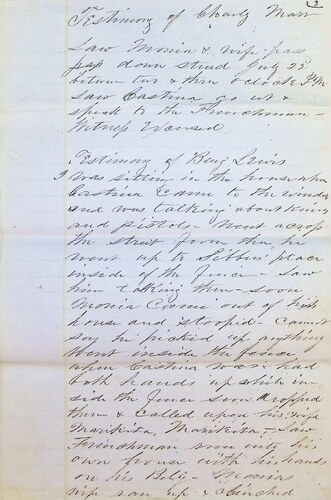 Testimony of Charly Marr
Saw Monia & wife pass
up down street July 25th
between two & three o clock P.M.
Saw Castina go out &
speak to the Frenchman –
Witness Excused.
Testimony of Benj Lewis
I was sitting in the house when
Castina came to the window
and was talking about Knives
and pistols – Went across
the street from there, he
went up to place
inside of the fence – Saw
him talking then – soon
Monia Came out of his
house and stooped – Cannot
say he picked up anything
Went inside the fence
when Castina was – had
both hands up while in-
side the fence soon dropped
them & Called upon his wife
Marikita, Marikita, – Saw
Frenchman run into his
own house with his hands
on his Belly – Monias
wife ran up &